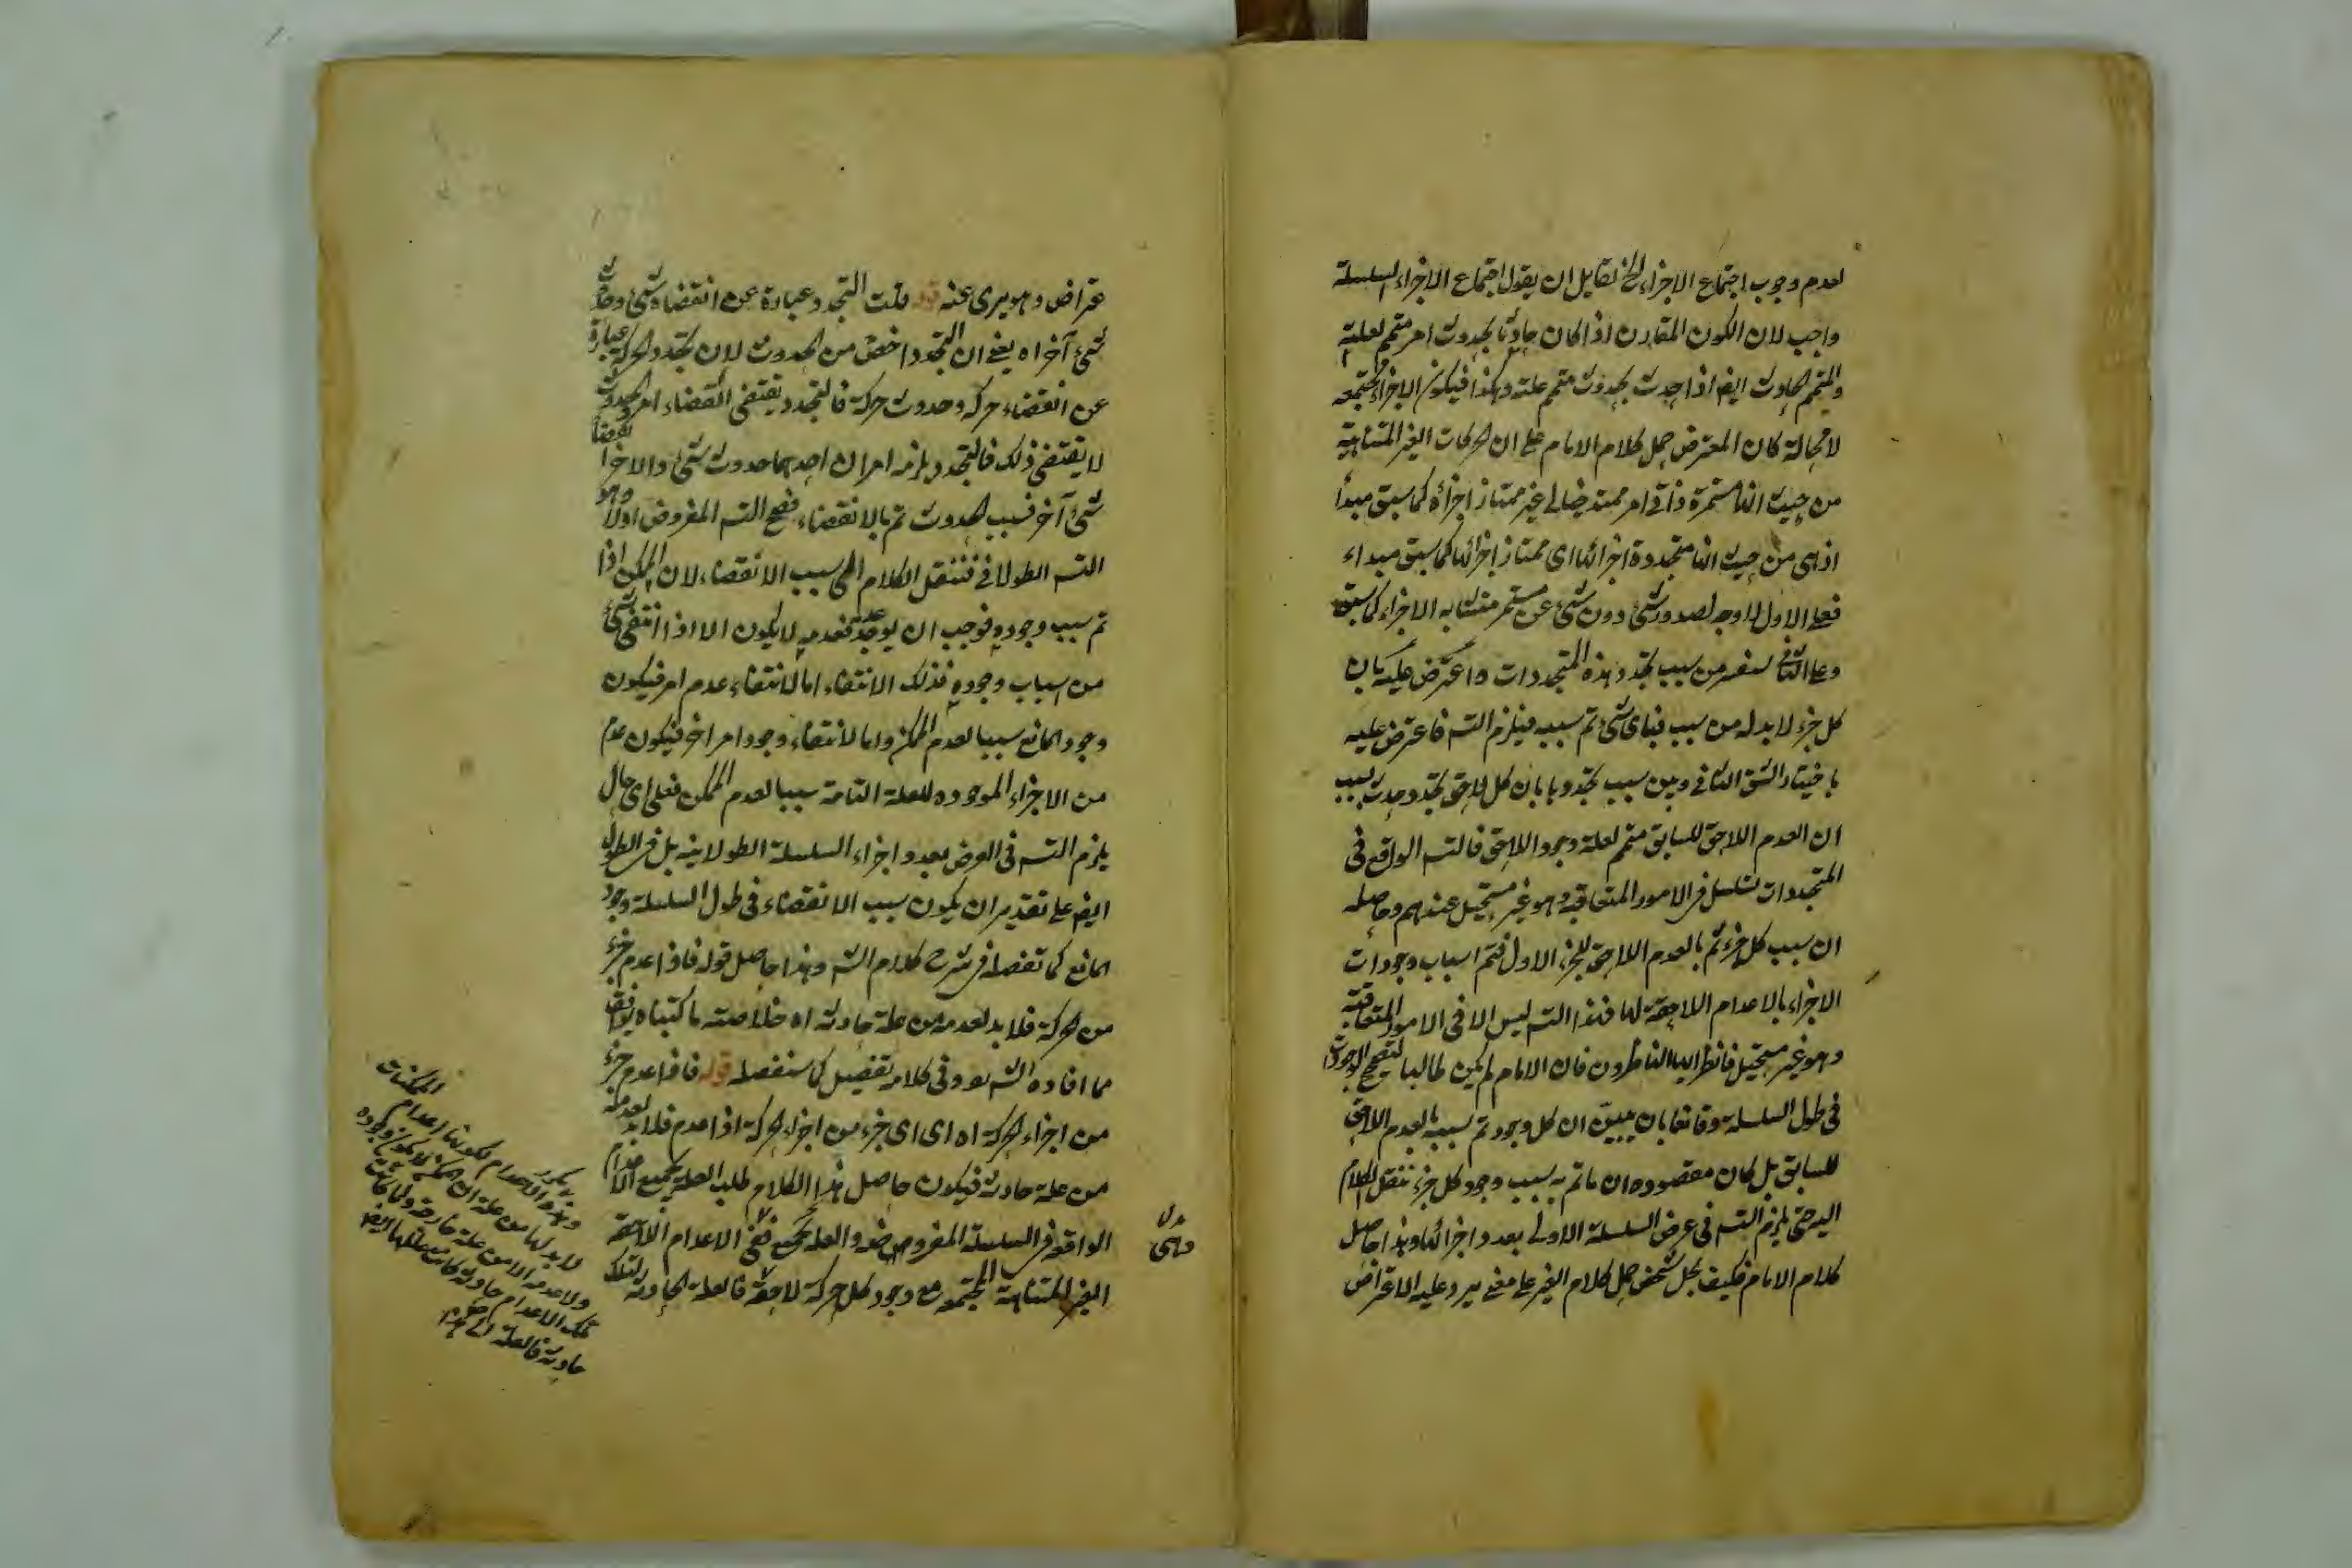 لعدم وجوب اجتماع الاجزاء الخ لقايل ان يقول اجتماع الاجزاء السلسلة
واجب لان الكون المقارن اذا كان حادثا بحدوث امر متمم لعلته
والمتمم الحادث ايضا اذا حدث بحدوث متمم علته وهكذا فيكون الاجزاء مجتمعه
لا محالة كان المعترض حمل كلام الامام على ان الحركات الغير المتناهية
من حيث انها مستمرة وانها امر ممتد خيالي غير ممتاز اجزائه كما سبق مبدأ
اذ هى من حيث انها متجددة اجزائها اى ممتاز اجزائها كما سبق مبداء
فعلى الاول لا وجه لصدور شئ دون شئ عن مستمر متشابه الاجزاء كما سبق
وعلى الثانى من سبب تجدد هذه المتجددات واعترض عليه بان
كل جزء لا بد له من سبب فباى شئ تم سببه فيلزم التسـ فاعترض عليه
باختيار الشق الثانى وبين سبب تجددها بان كل لاحق تجدد وحدث بسبب
ان العدم اللاحق للسابق متمم لعلة وجود اللاحق فالتسـ الواقع فى
المتجددات تسلسل فى الامور المتعاقبة وهو غير مستحيل عندهم وحاصله
ان سبب كل جزء تم بالعدم اللاحق للجزء الاول فتم اسباب وجودات
الاجزاء بالاعدام اللاحقة لها فهذا التسـ ليس الا فى الامور المتعاقبة
وهو غير مستحيل فانظر ايها الناظرون فان الامام لم يكن طالبا لتصحيح الوجودات
فى طول السلسلة وقانعا بان يبين ان كل وجود تم سببه بالعدم اللاحق
للسابق بل كان مقصوده ان ما تم به سبب وجود كل جزء ننقل الكلام
اليه حتى يلزم التسـ فى عرض السلسلة الاولى بعدد اجزائها وهذا حاصل
كلام الامام فكيف يحل شخص حمل كلام الغير على معنى يرد عليه الاعتراض
عتراض وهو برى عنه قوله قلت التجدد عبارة عن انقضاء شئ وحدوث
شئ آخر اه يعنى ان التجدد اخص من الحدوث لان تجدد الحركة عبارة
عن انقضاء حركة وحدوث حركة فالتجدد يقتضى انقضاء امر والحدوث
لا يقتضى ذلك فالتجدد يلزمه امران احدهما حدوث شئ والاخر انقضاء
شئ آخر فسبب الحدوث تم بالانقضاء فصح التسـ المفروض اولا وهو
التسـ الطولانى فننقل الكلام الى سبب الانقضاء لان الممكن اذا
تم سبب وجوده فوجب ان يوجد فعدمه لا يكون الا اذا انتفى شئ
من اسباب وجوده فذلك الانتفاء اما لانتفاء عدم امر فيكون
وجود المانع سببا لعدم الممكن واما لانتفاء وجود امر اخر فيكون عدم
من الاجزاء الموجوده للعلة التامة سببا لعدم الممكن فعلى اى حال
يلزم التسـ فى العرض بعدد اجزاء السلسلة الطولانيه بل فى الطول
ايضا على تقدير ان يكون سبب الانقضاء فى طول السلسلة وجود
المانع كما تفصله فى شرح كلام الشـ وهذا حاصل قوله فاذا عدم جزء
من الحركة فلا بد لعدمه من علة حادثة اه خلاصته ما كتبناه يوافق
مما افاده الشـ وفى كلامه تفصيل كما سنفصله قوله فاذا عدم جزء
من اجزاء الحركة اه اى اى جزء من اجزاء الحركة اذا عدم فلا بد لعدمه
من علة حادثة فيكون حاصل هذا الكلام طلب العلة لجميع الاعدام
الواقعة فى السلسلة المفروضه والعلة لجميع الاعدام اللاحقة
الغير المتناهية المجتمعه مع وجود كل حركة لاحقة فالعلة الحادثة لتلك
وهى
الممكنات
وهذه الاعدام لكونها اعدام
لا بد لها من علة
ولا عدمه الا من علة خارجة
تلك الاعدام حادثة كانت علتها ايضا
حادثة فالعلة